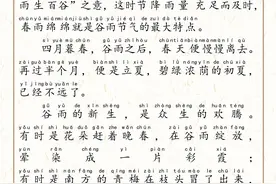 雨生百谷”之意，这时节降雨量充足而及时，
chūn yǔ mián mián jiù shì gǔ yǔ jié qì de zuì dà tè diǎn
春雨绵绵就是谷雨节气的最大特点。
sì yuè mù chūn gǔ yǔ zhī hòu chūn tiān biàn màn màn lí qù
四月暮春，谷雨之后，春天便慢慢离去。
zài guò bàn gè yuè biàn shì lì xià bì lǜ nóng yīn de chū xià
再过半个月，便是立夏，碧绿浓荫的初夏，
yǐ jīng bù yuǎn le
已经不远了。
gǔ yǔ de xīn shēng shì zhòng shēng de huān téng
谷雨的新生，是众生的欢腾。
yǒu shí shì huā duǒ gǎn zhe wǎn chūn zài gǔ yǔ zhàn fàng
有时是花朵赶着晚春，在谷雨绽放，
yùn rǎn chéng yī piàn cǎi xiá
晕染成一片彩霞；
yǒu shí shì nán fāng de qīng méi zài zhī tóu mào le chū lái
有时是南方的青梅在枝头冒了出来，